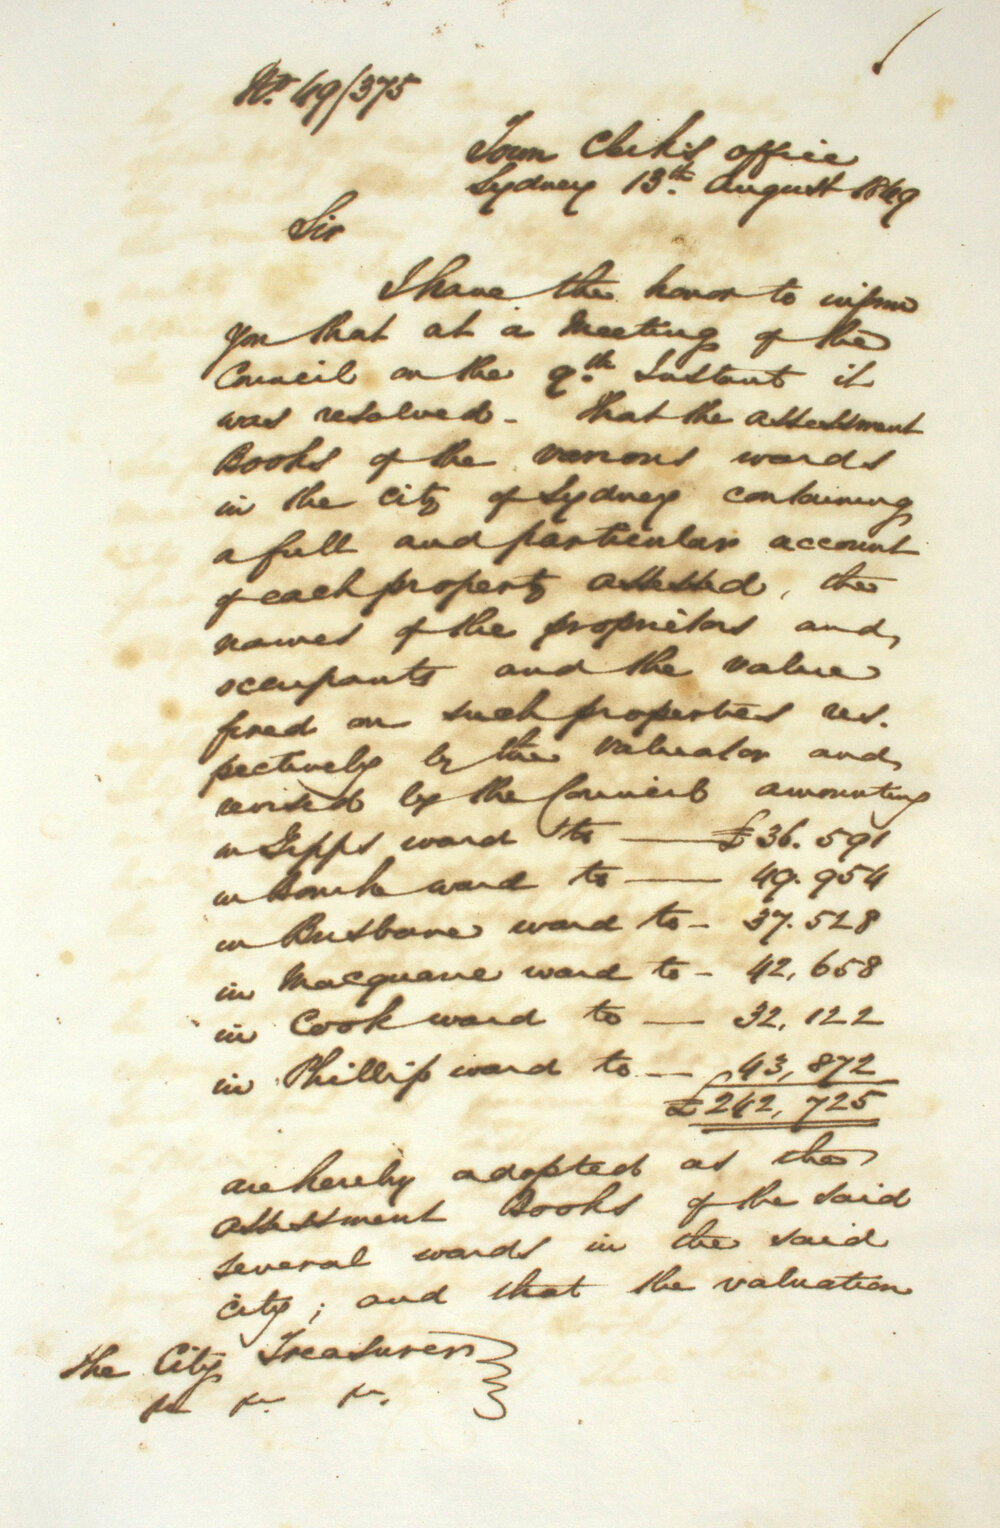 No. 49/375
Town Clerk's office
Sydney 13th August 1849
Sir
I have the honor to inform
you that at a Meeting of the
Council on the 9th Instant it
was resolved - that the assessment
Books of the various wards
in the City of Sydney containing
a full and particular account
of each property assessed, the
names of the proprietors and
occupants and the value
fixed on such properties res.
pectively by the valuator and
revised by the Council amounting
in Gipps ward to — £36.591
in Bourke ward to — 49.954
in Brisbane ward to - 37.528
in Macquarie ward to - 42,658
in Cook ward to — 32,122
in Phillip ward to — 43,872
£242,725
are hereby adopted as the
assessment Books of the said
several wards in the said
city; and that the valuation
The City Treasurer